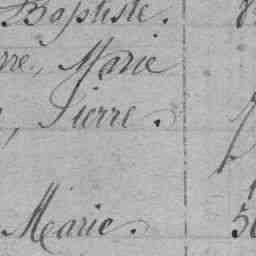 Baptiste.
rre, Marie
, Pierre.
Marie.